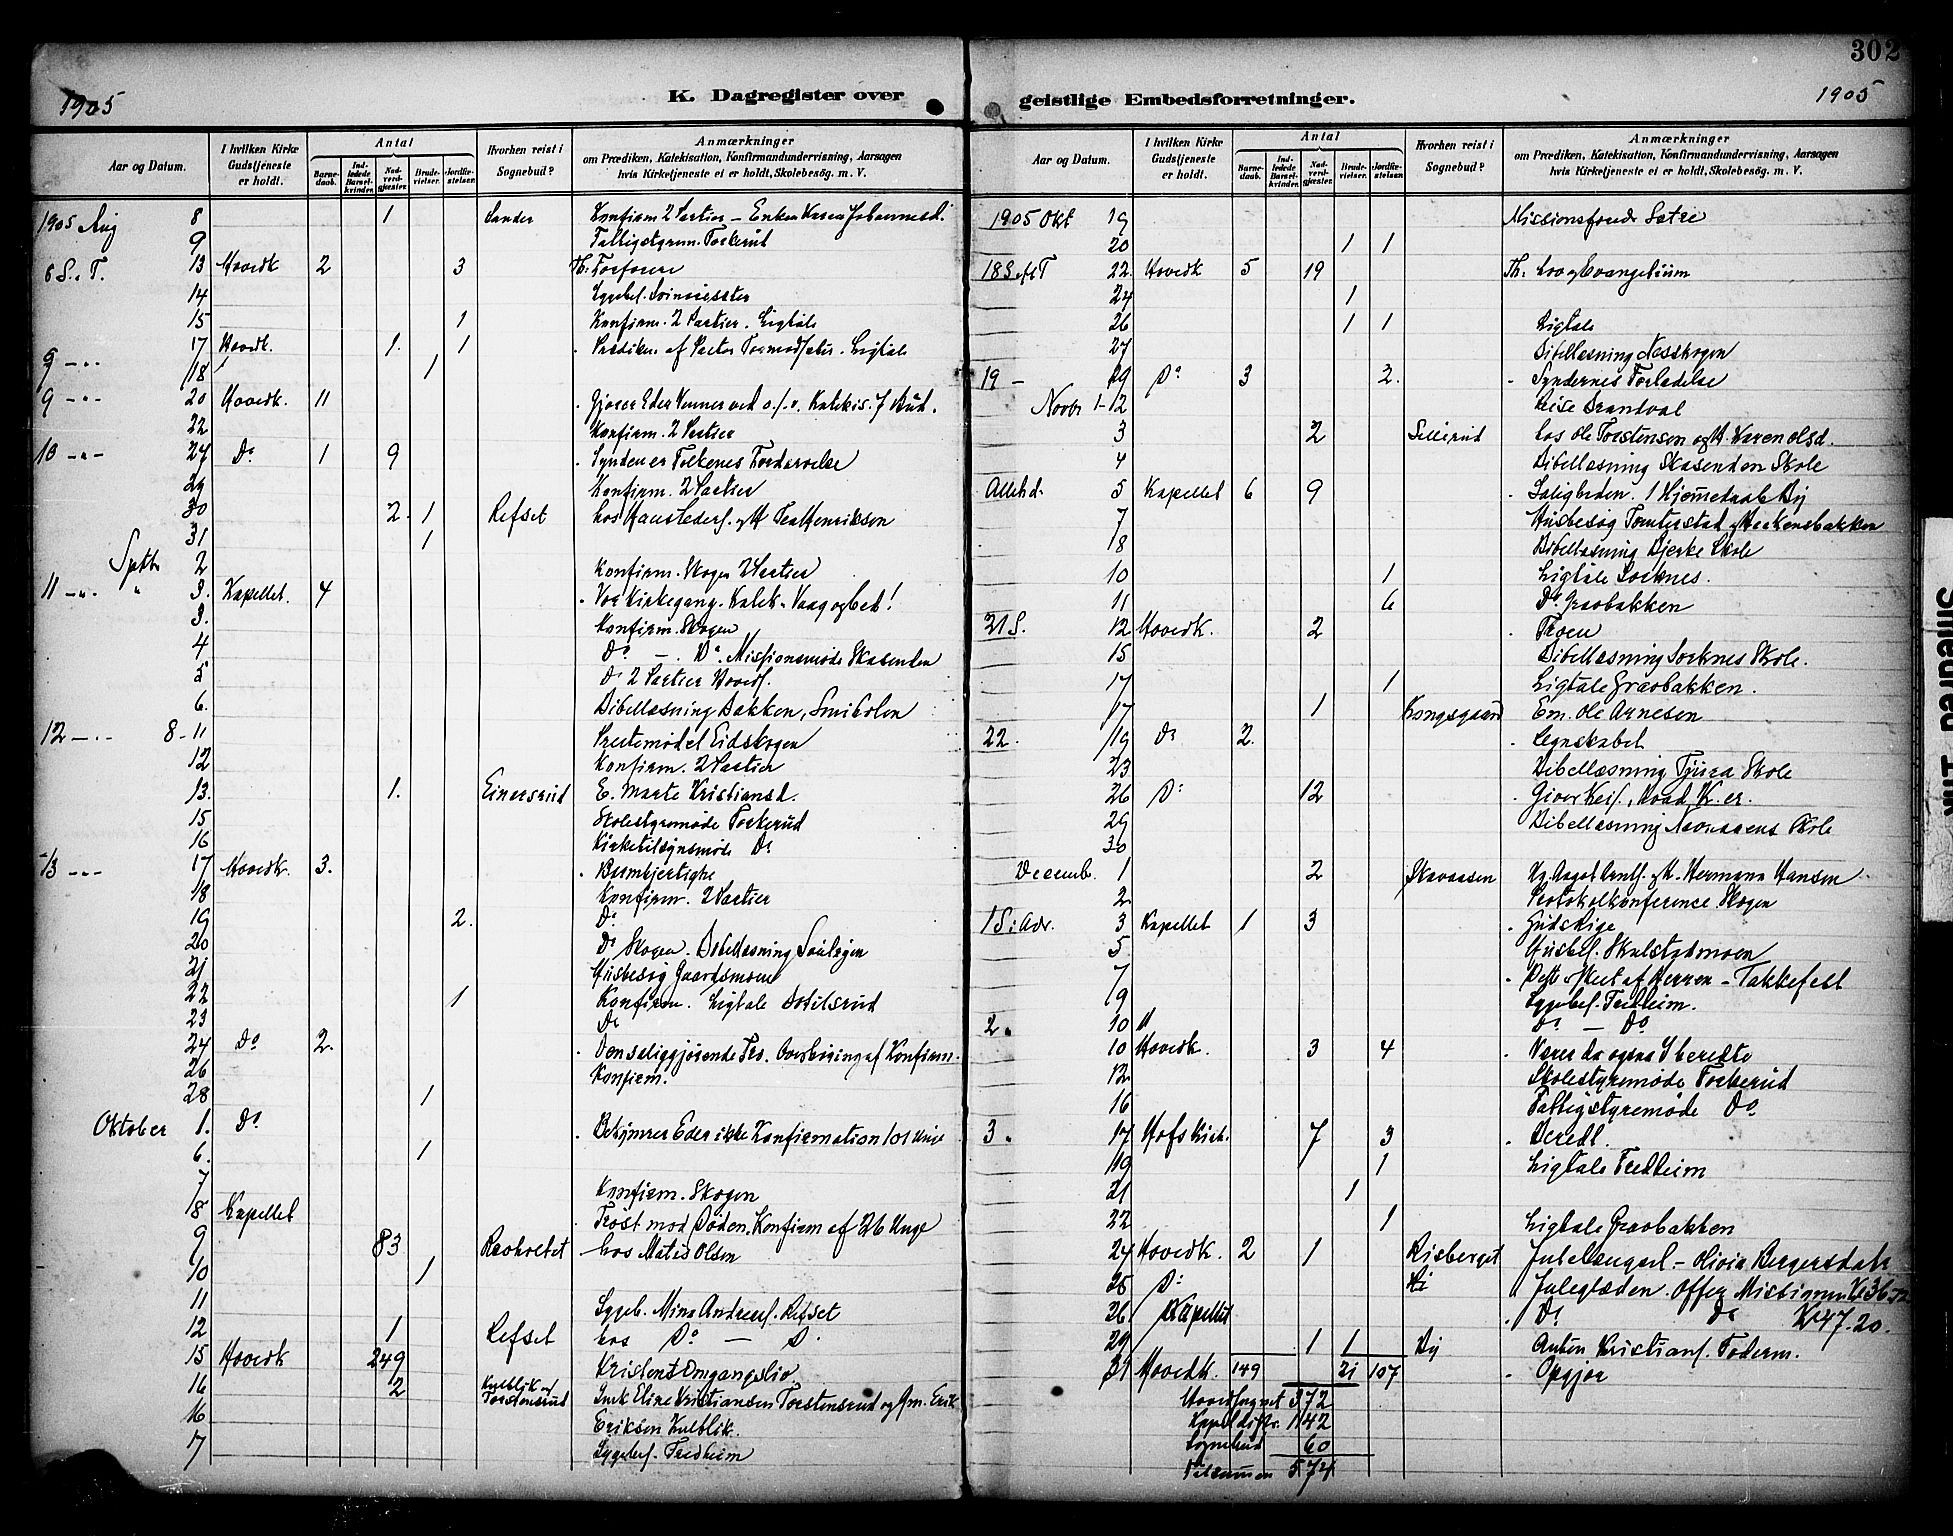 302
1905
K. Dagregister over
geistlige Embedsforretninger.
1905
Aar og Datum.
I hvilken Kirke Gudstjeneste er holdt.
Antal
Barnedaab.
Indledede Barselkvinder.
Nadverdgjæster.
Brudevielser.
Jordfæstelser.
Hvorhen reist i Sognebud?
Anmærkninger
om Prædiken, Katekisation, Konfirmandundervisning, Aarsagen
hvis Kirketjeneste ei er holdt, Skolebesøg. m. V.
1905 Aug 8 1 Sander Konfirm 2 Partier – Enken Karen Johannesd.
9 Fattigstyrem. Torkerud
6 S. e. T. 13 Hovedk 2 3
14 Sygebes.
15 1 Konfirm. 2 Partier. Ligtale
17 Hovedk. 1. 1 Prædiken af Pastor Ligtale
9 -"- 18 1
9 -"- 20 Hovedk. 11 Gjører Eder Venner ved o.s.v. Katekis. 7 Bud.
22 Konfirm. 2 Partier
10 -"- 27 Do 1 9 Synden er Folkenes Fordærvelse
29 Konfirm. 2 Partier
30 2. 1 Refset hos
31 1
Septb 2 Konfirm. Skogen 2 Partier
11 -"- " 3. Kapellet. 4 Vor Kirkegang. Katek. Vaag og bed!
3. Konfirm. Skogen
4 Do - Do. Missionsmøde Skasenden
5 Do 2 Partier Hoveds.
6. Bibellæsning Bakken,
12 -"- 8-11 Prestemødet Eidskogen
12 Konfirm. 2 Partier
13. 1. Einersrud E. Marte Kristiansd.
15 Skolestyremøde Torkerud
16 Kirketilsynsmøde Do
13 -"- 17 Hovedk. 3. Barmhjertighe
18 Konfirm. 2 Partier
19 2. Do
20 Do Skogen. Bibellæsning
21 Husbesøg Gaardsmoen
22 1 Konfirm. Ligtale
23 Do
24 Do 2. Den saliggjørende Tro. Overhøring af Konfirm.
26 Konfirm.
28 1
Oktober 1. Do Bekymrer Eder ikke Konfirmation 101 Unge
6. 1
7 Konfirm. Skogen
8 Kapellet Trøst mod Døden. Konfirm af 26 Unge
9 83 hos Matis Olsen
10 1
11 Sygeb. Mina Andreas. Refset
12 1 Refset hos Do — D.
15 Hovedk 249 Kristent Omgangsliv
16 2 Kulblik og Torstensrud Eline Kristiansen Torstensrud og Gm. Erik
16 Eriksen Kulblik.
17 Sygebes. Fredheim
Aar og Datum.
I hvilken Kirke Gudstjeneste er holdt.
Antal
Barnedaab.
Indledede Barselkvinder.
Nadverdgjæster.
Brudevielser.
Jordfæstelser.
Hvorhen reist i Sognebud?
Anmærkninger
om Prædiken, Katekisation, Konfirmandundervisning, Aarsagen
hvis Kirketjeneste ei er holdt, Skolebesøg. m. V.
1905 Okt 19 Sætre
20 1 1
18 S. af T 22. Hovedk 5 19 Th: Lov og Evangelium
24 1
26 1 1 Ligtale
27 Bibellæsning Næsskogen
19 - 29 Do 3 2. Syndernes Forladelse
Novbr 1-12 Reise Brandval
3 2 Sillerud hos Ole Torstensen og H. Karen Olsd.
4 Bibellæsning Skasenden Skole
Alleh.d. 5 Kapellet 6 9 Saligheden. 1 Hjemmedaab By
7 Husbesøg Tomterstad og Haakensbakken
8 Bibellæsning Bjerke Skole
10 1 Ligtale Sorknes.
11 6 Do. Graabakken
21 S. 12 Hovedk. 2 Troen
15 Bibellæsning Sorknes Skole.
17 1 Ligtale Graabakken.
17 1 Kongsgaard Em. Ole Arnesen
22. 19 Do 2. Regnskabet
23 Bibellæsning Tjura Skole
26 Do 12 Giver Keis. hvad K. er.
29 Bibellæsning Skole
30
Decemb. 1 2 Skavaasen Hermann Hansen
2 Protokolkonference Skogen
1 S. i Adv. 3 Kapellet 1 3 Guds Rige
5 Husbes. Skulstadmoen
7 Dette er skeet af Herren – Takkefest
9 Sygebes. Fredheim.
2. 10 " Do — Do
10 Hovedk. 3 4 Værer da ogsaa I beredte
12 Skolestyremøde Torkerud
16 Fattigstyremøde Do
3. 17 Hofs Kirk. 7 3 Beredt.
19 1 Ligtale Fredheim
21 1
22 1 Ligtale Graabakken
24 Hovedk. 2 1 Risberget – Olivia Bergersdatr
25 Do Juleglæden. Offer Missionen K 36.72
26 Kapellet Do Do K 47.20.
29 1 1 By Anton Kristians. Foderm.
31 Hovedk. 149 21 107 Opgjør
Hovedsognet 372
Kapeldistr. 142
Sognebud 60
Tilsammen 574